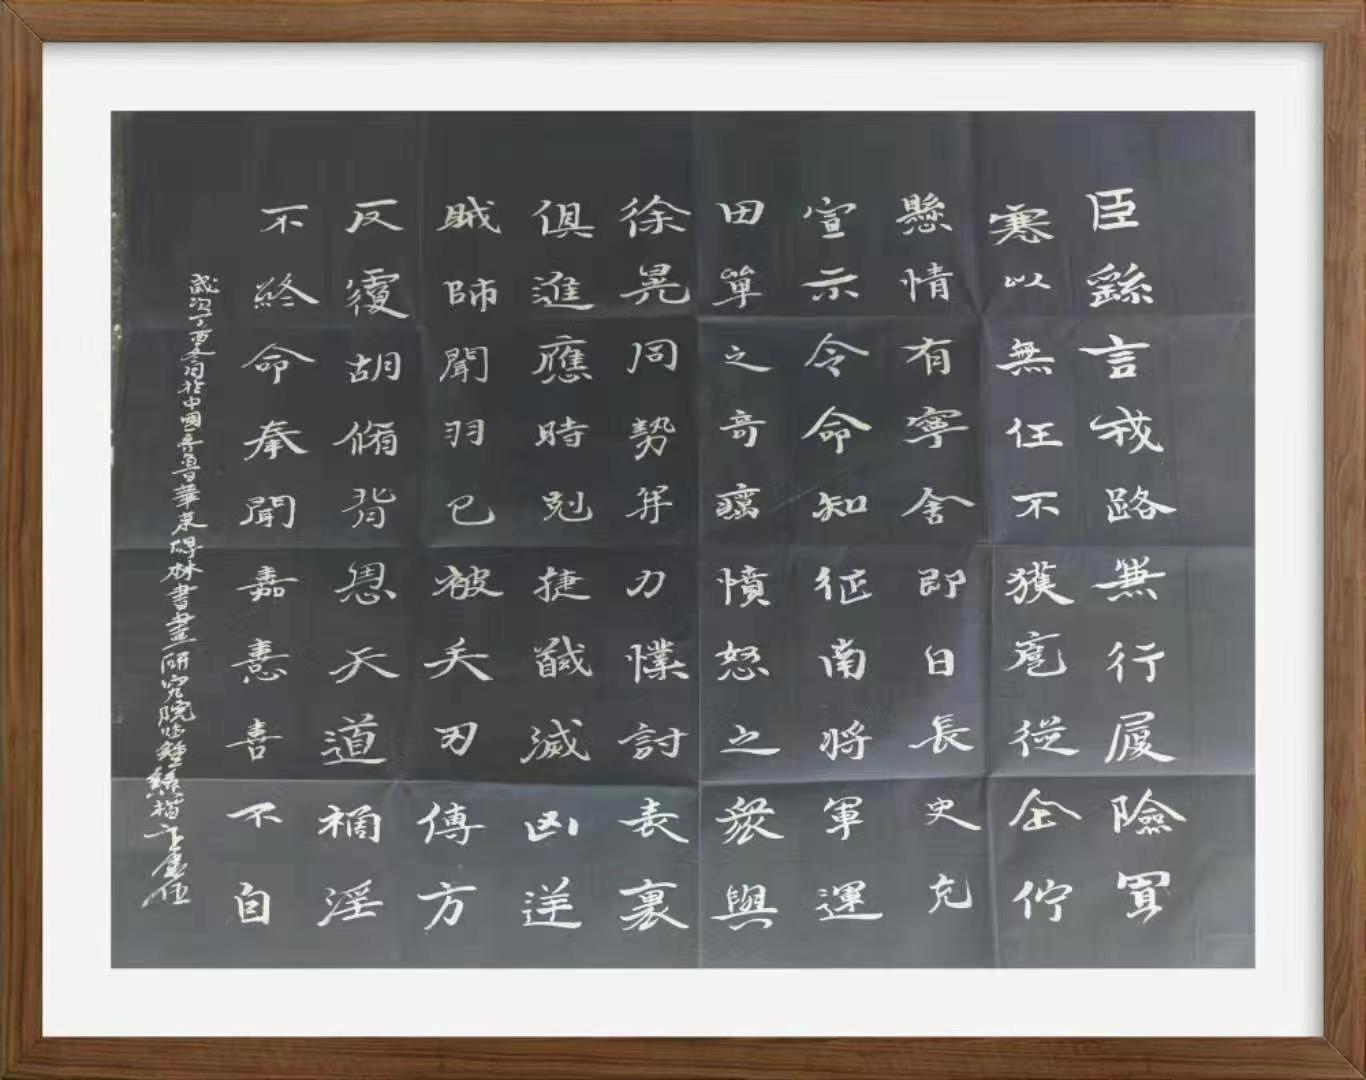 臣繇言戎路兼行履險冒
寒以無任不獲扈從企佇
懸情有寧舍即日長史充
宣示令命知征南將軍運
田單之奇厲憤怒之眾與
徐晃同勢并力撲討表裏
俱進應時剋捷馘滅凶逆
賊師聞羽已被矢刃傅方
反覆胡脩背恩天道禍淫
不終命奉聞嘉憙喜不自
歲次丁酉冬月於中國齊魯華東碑林書畫研究院臨鍾繇楷